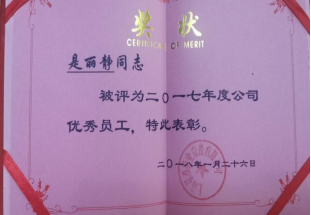 奖状
CERTIFICATE OF MERIT
是丽静同志
被评为二〇一七年度公司
优秀员工，特此表彰。
二〇一八年一月二十六日